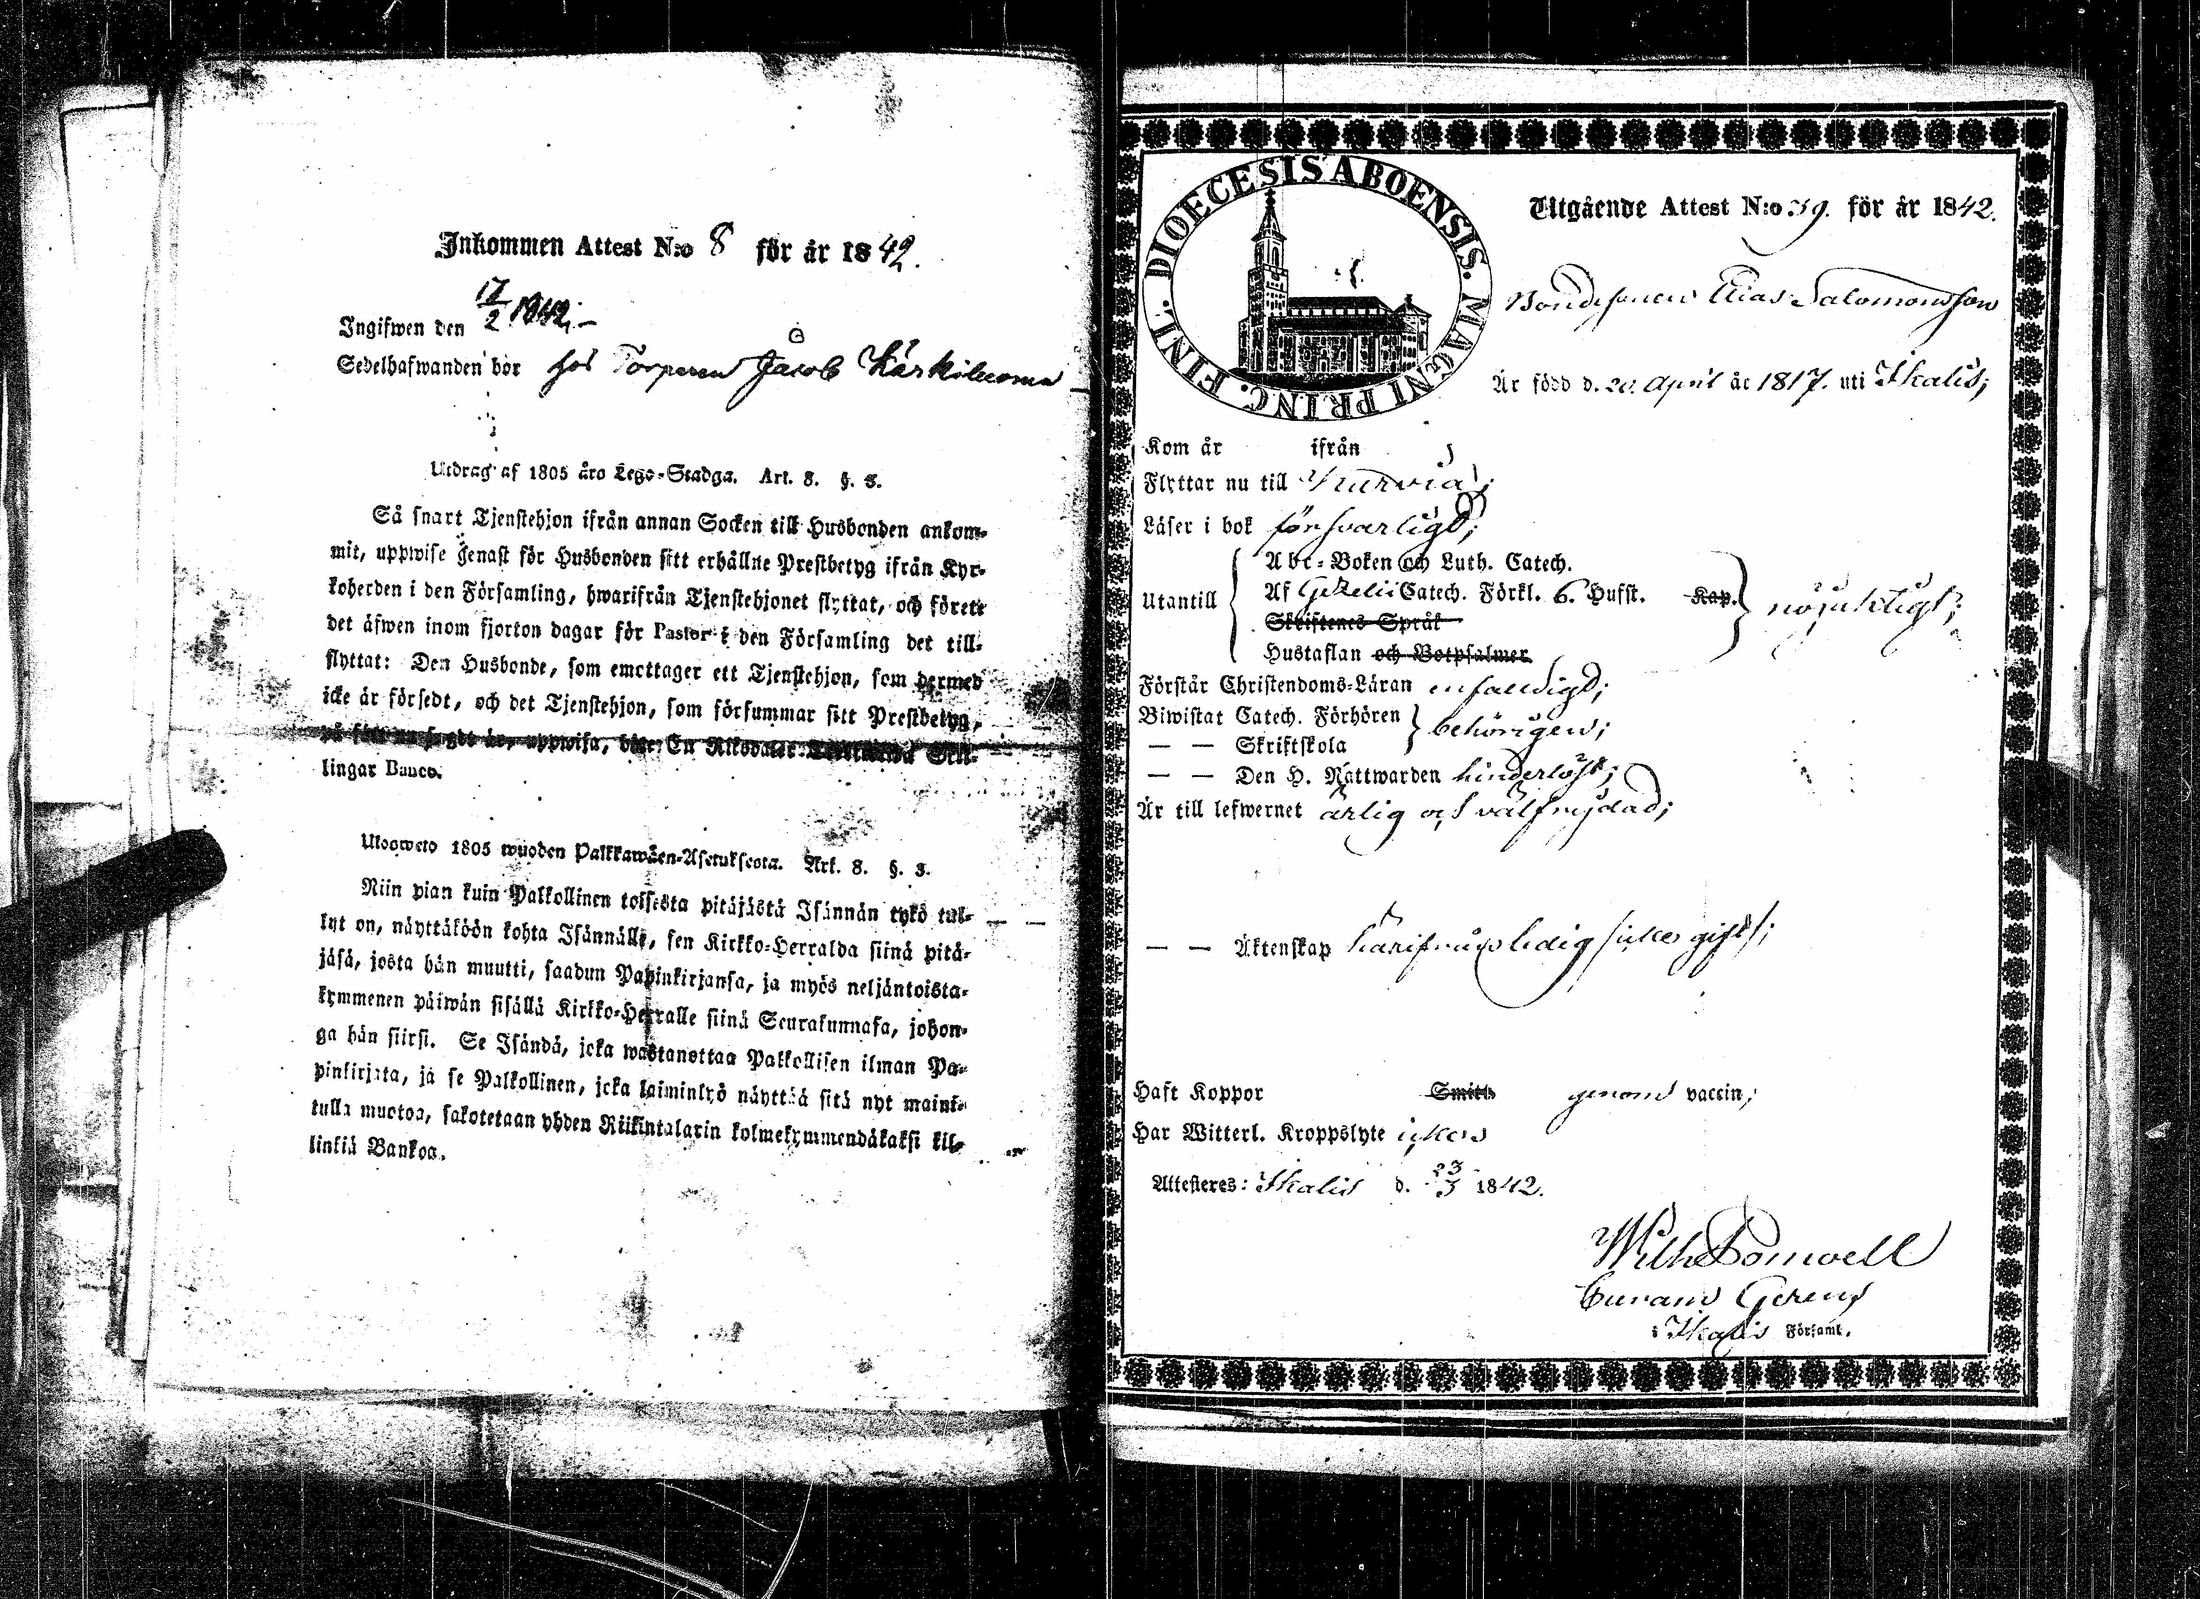 Inkommen Attest N:o 8 för år 1842.
Ingifwen den 17/2 1842;
Sedelhafwanden bor hos Torparen Jacob Kärkiluoma
Utdrag af 1805 års Lego-Stadga. Art. 8. §. 3.
Så snart Tjenstehjon ifrån annan Socken till Husbonden ankom-
mit, uppwise genast för Husbonden sitt erhållne Prestbetyg ifrån Kyr-
koherden i den Församling, hwarifrån Tjenstehjonet flyttat, och förete
det äfwen inom fjorton dagar för Pastor i den Församling det till-
flyttat: Den Husbonde, som emottager ett Tjenstehjon, som dermed
icke är försedt, och det Tjenstehjon, som försummar sitt Prestbetyg,
på sätt nu sagdt är, uppwisa, böte En Riksdaler Skil-
lingar Banco.
Ulosweto 1805 wuoden Palkkawäen-Asetuksesta. Art. 8. §. 3.
Niin pian kuin Palkollinen toisesta pitäjästä Isännän tykö tul-
lut on, näyttäköön kohta Isännälle, sen Kirkko-Herralda siinä pitä-
jäsä, josta hän muutti, saadun Papinkirjansa, ja myös neljäntoista-
kymmenen päiwän sisällä Kirkko-Herralle siinä Seurakunnasa, johon-
ga hän siirsi. Se Isändä, joka wastanottaa Palkollisen ilman Pa-
pinkirjata, ja se Palkollinen, joka laiminlyö näyttää sitä nyt maini-
tulla muotoa, sakotetaan yhden Riikintalarin kolmekymmendäkaksi kil-
linkiä Bankoa.
DIOECESIS ABOENSIS. MAGNI PRINC. FINL.
Utgående Attest N:o 39. för år 1842.
Bondesonen Elias Salomonsson
Är född d. 20. April år 1817. uti Ikalis;
Kom år ifrån
Flyttar nu till Kurvia;
Läser i bok försvarligt;
Abc-Boken och Luth. Catech.
Utantill Af Gezelii Catech. Förkl. 6. Hufst. Kap. nöjaktigt;
Skriftenes Språk
Hustaflan och Botpsalmer
Förstår Christendoms-Läran enfaldigt;
Biwistat Catech. Förhören behörigen;
— — Skriftskola
— — Den H. Nattwarden hinderlöst;
Är till lefwernet ärlig och välfrejdad;
— — Äktenskap härifrån ledig /icke gift/;
Haft Koppor Smitt. genom vaccin;
Har Witterl. Kroppslyte icke
Attesteres: Ikalis d. 23/3 1842.
Wilh
Curam Gerens
i Ikalis Församl.